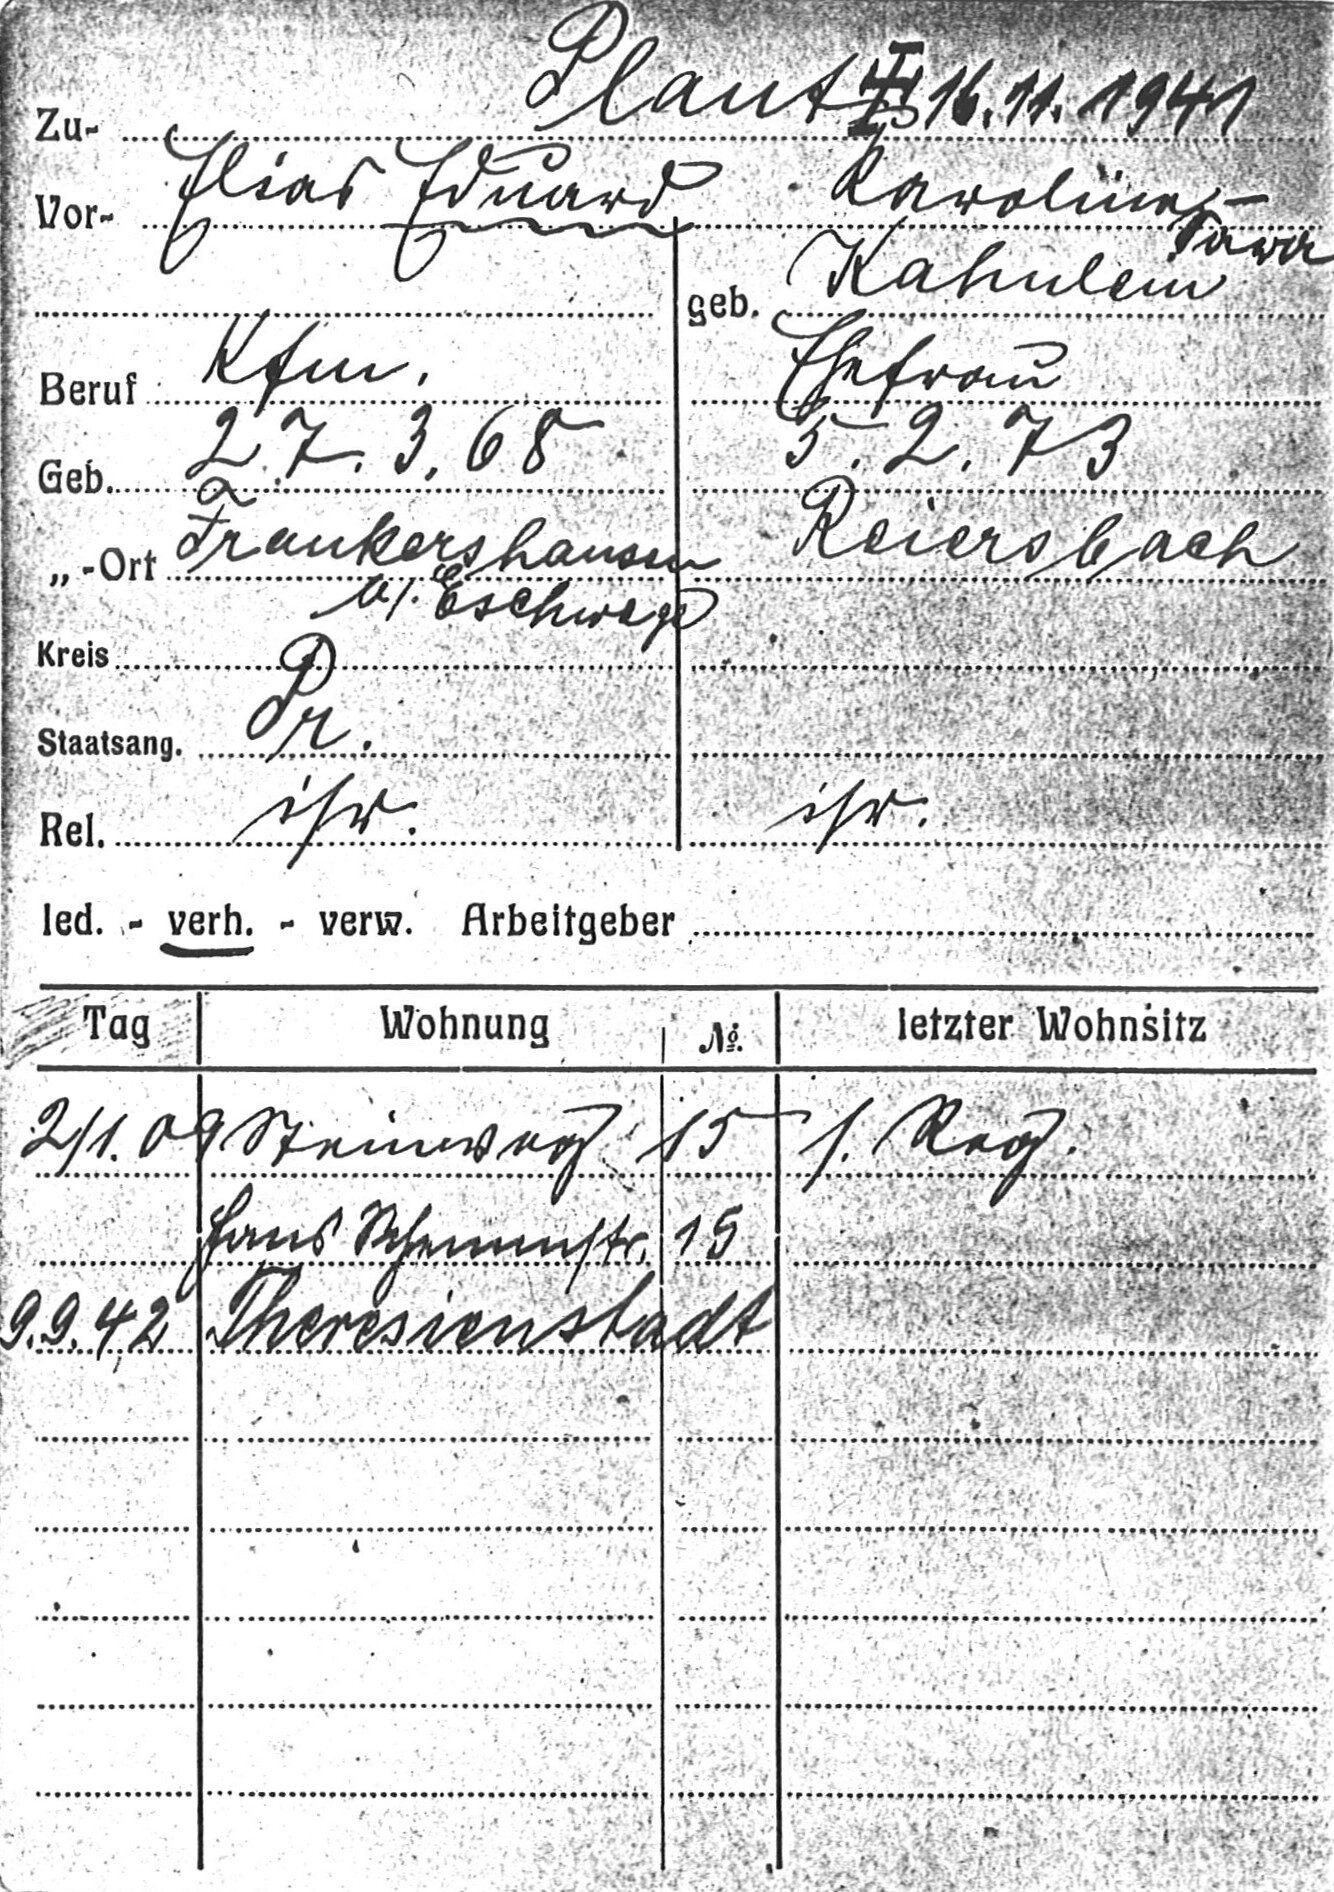 Zu- Plaut 16.11.1941
Vor- Elias Eduard Karoline
Sara
geb. Kahnlein
Beruf Kfm. Ehefrau
Geb. 27.3.68 5.2.73
„-Ort Frankershausen Reiersbach
b/. Eschwege
Kreis
Staatsang. Pr.
Rel. isr. isr.
led. - verh. - verw. Arbeitgeber
Tag Wohnung No. letzter Wohnsitz
2/1.09 Steinweg 15 s. Reg.
Hans Schemmstr. 15
9.9.42 Theresienstadt